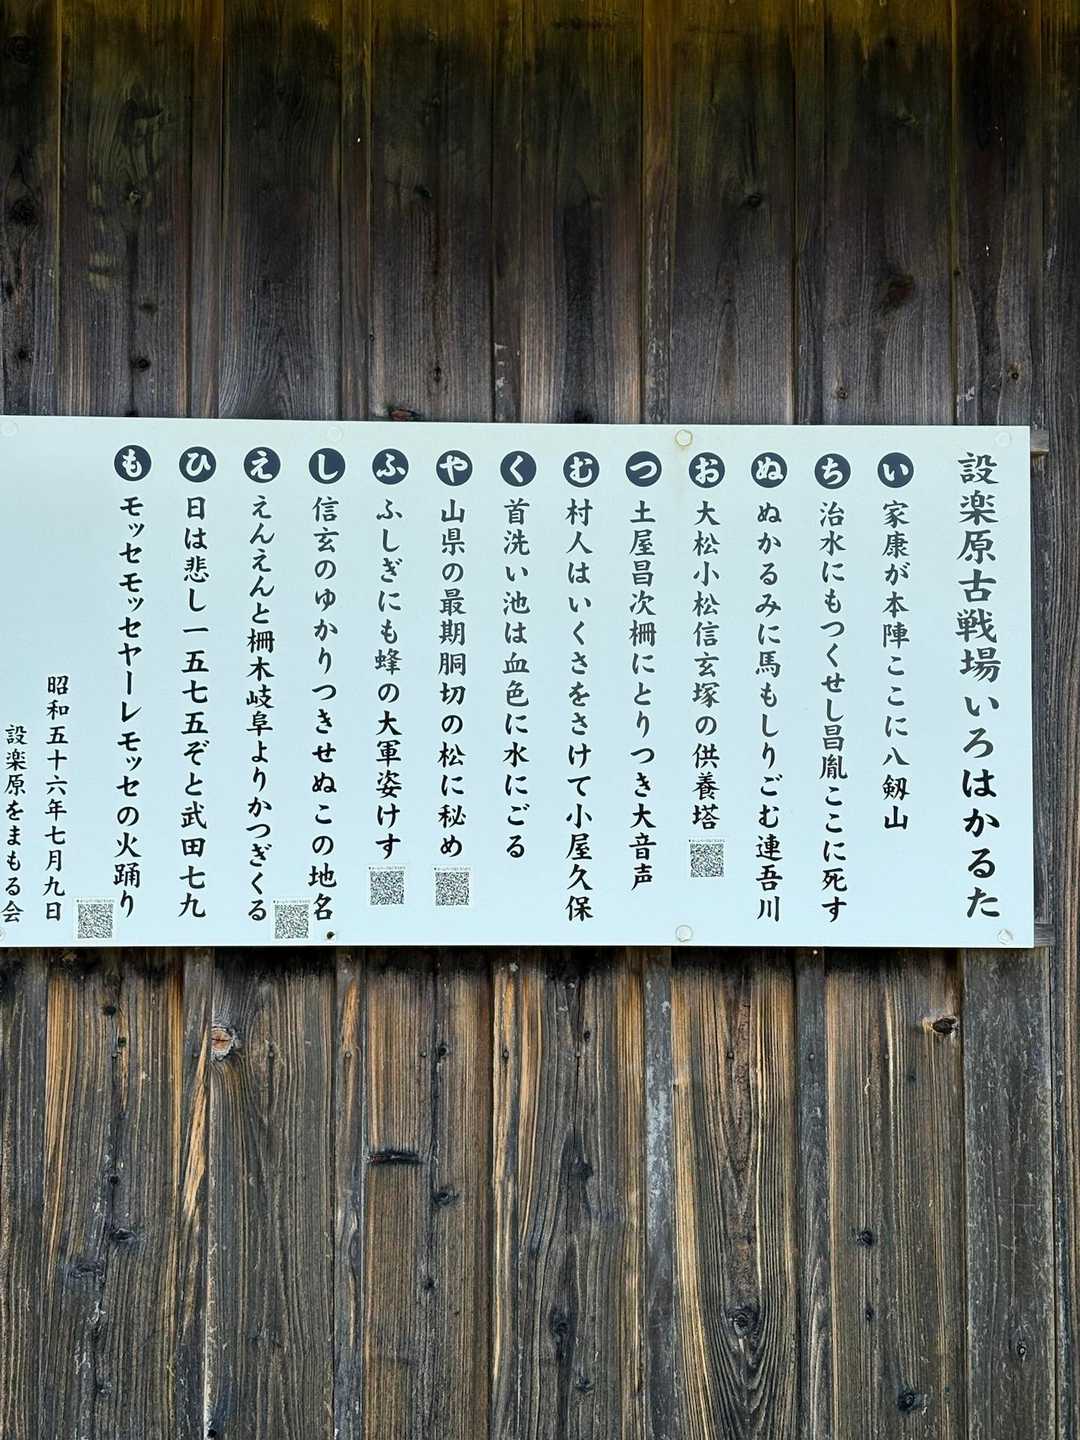 設楽原古戦場いろはかるた
い 家康が本陣ここに八剱山
ち 治水にもつくせし昌胤ここに死す
ぬ ぬかるみに馬もしりごむ連吾川
お 大松小松信玄塚の供養塔
つ 土屋昌次柵にとりつき大音声
む 村人はいくさをさけて小屋久保
く 首洗い池は血色に水にごる
や 山県の最期胴切の松に秘め
ふ ふしぎにも蜂の大軍姿けす
し 信玄のゆかりつきせぬこの地名
え えんえんと柵木岐阜よりかつぎくる
ひ 日は悲し一五七五ぞと武田七九
も モッセモッセヤーレモッセの火踊り
昭和五十六年七月九日
設楽原をまもる会